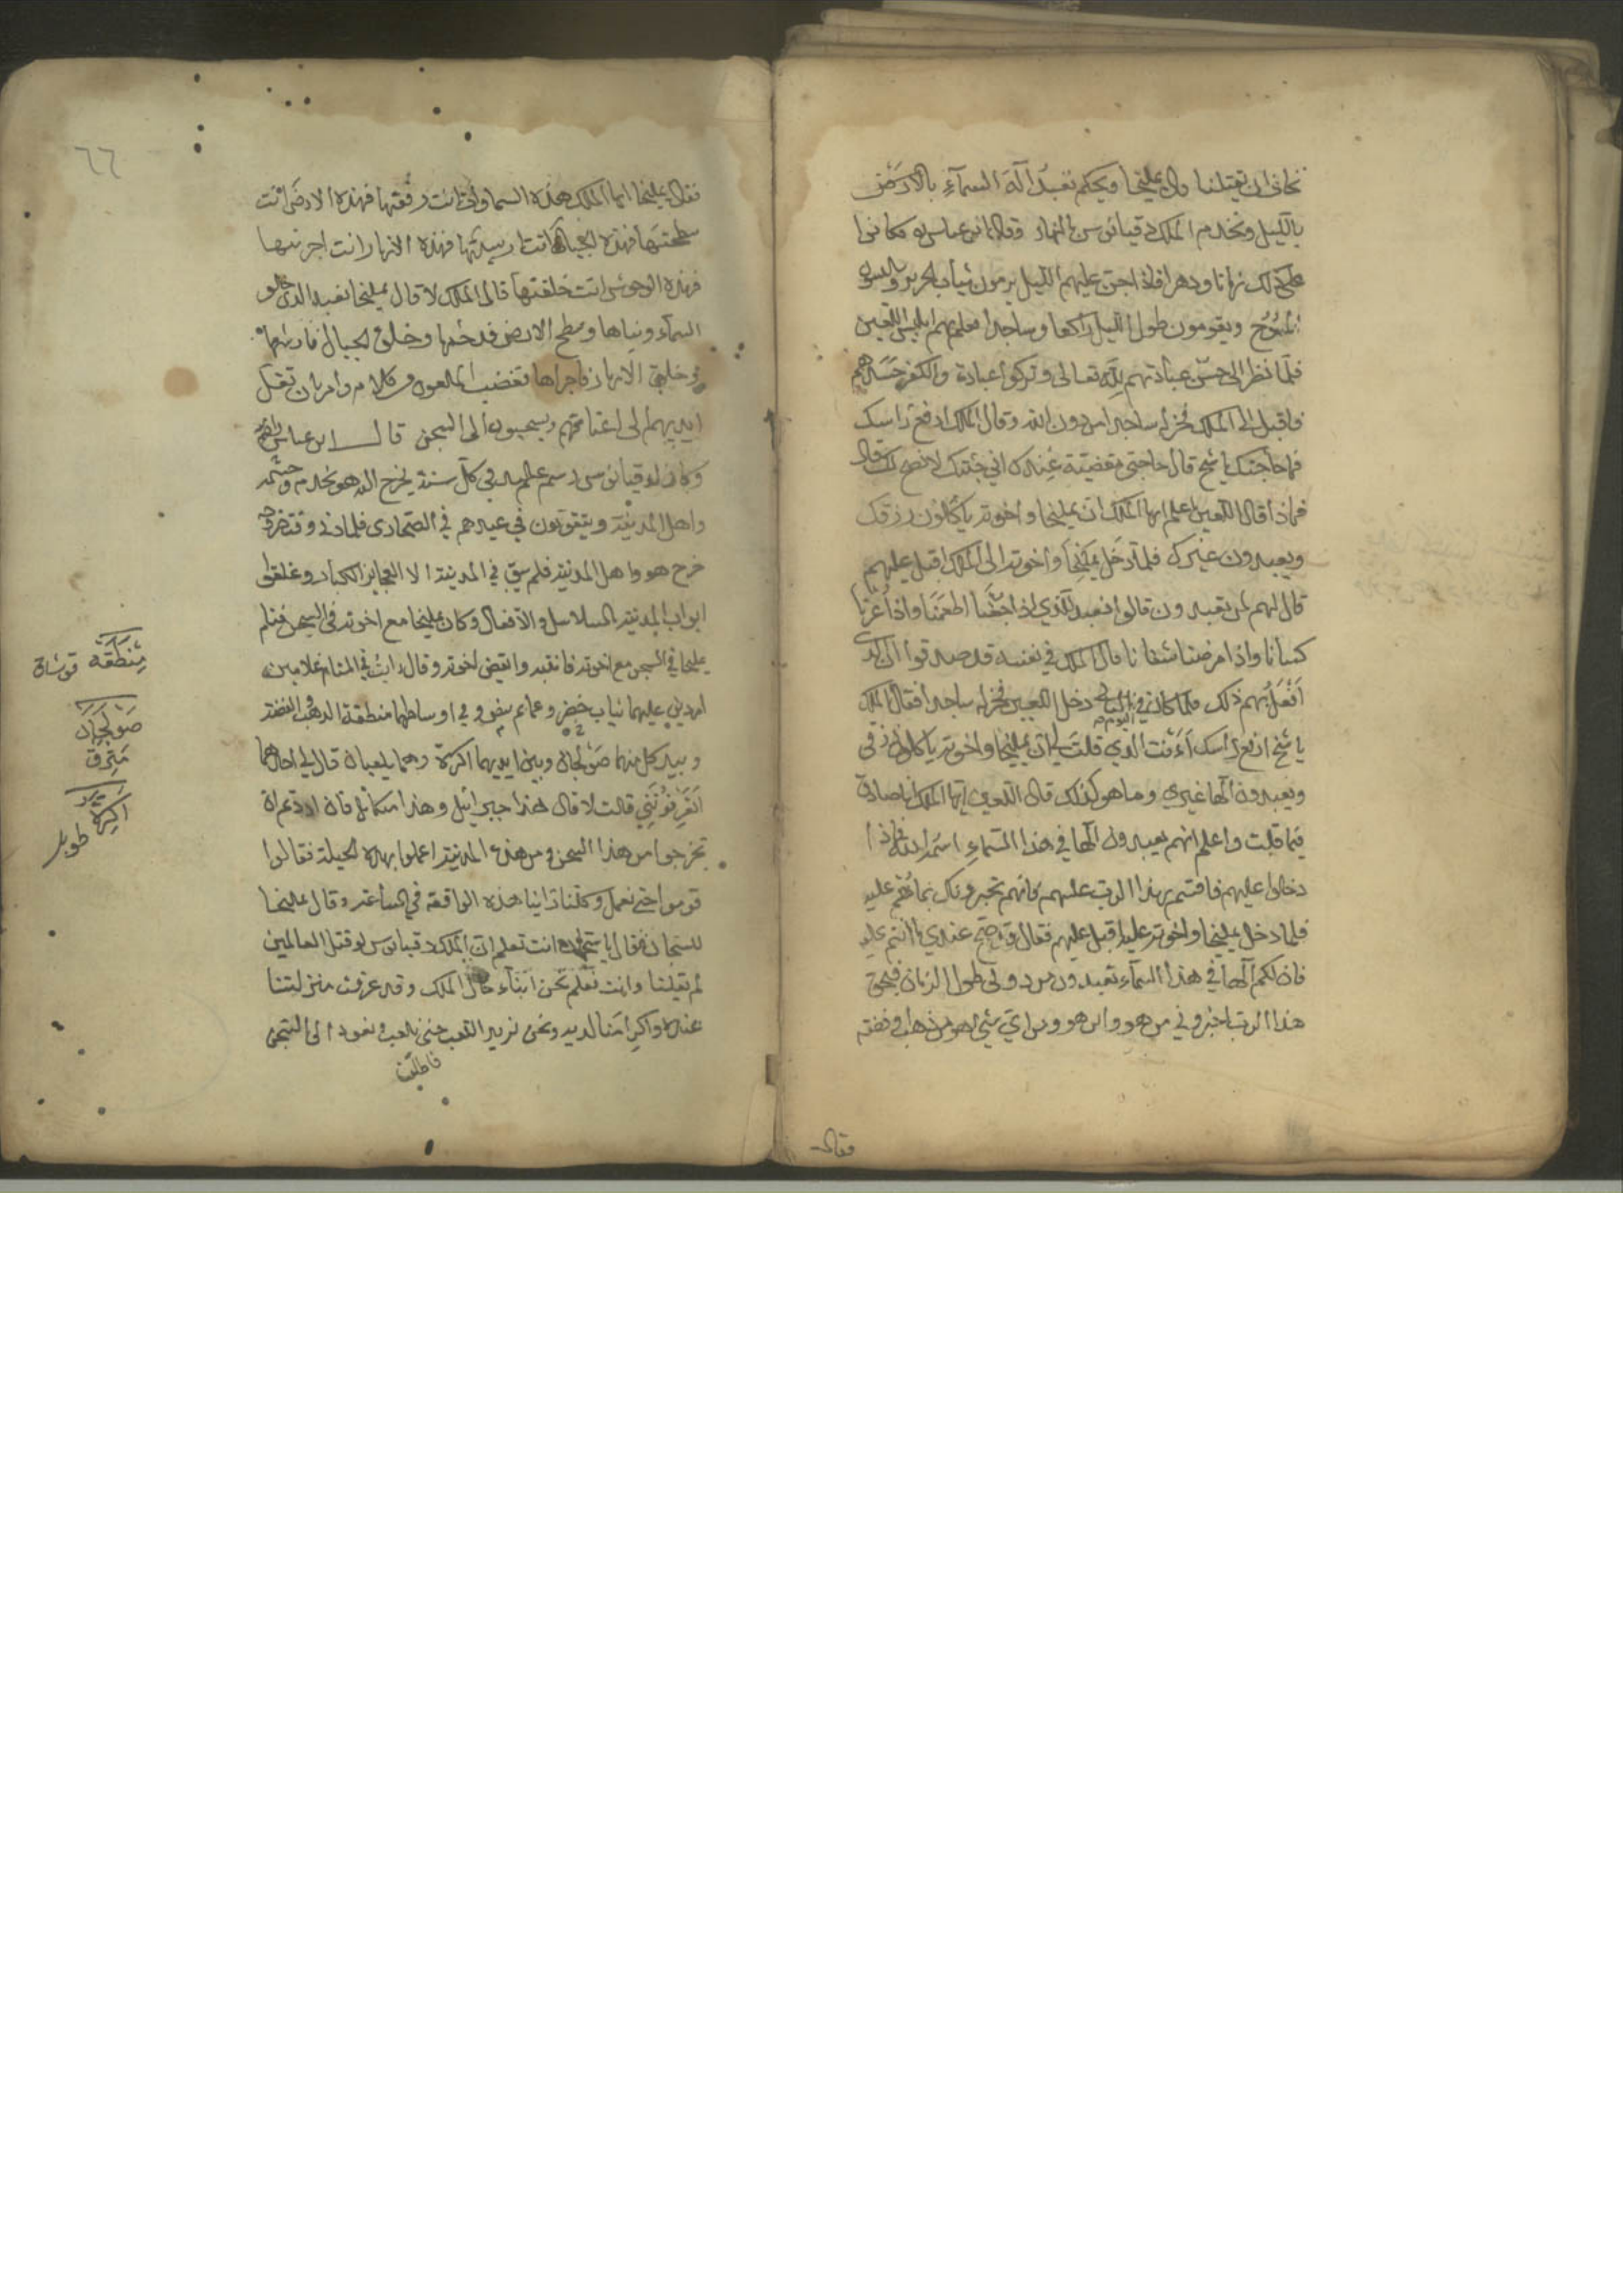 نخاف ان يقتلنا قال يمليخا ويحكم نعبد اله السمآء بالارض
بالليل ونخدم الملك دقيانوس بالنهار وقال ابن عباس فكانوا
على ذلك زمانا ودهرا فاذا اجن عليهم الليل يرمون ثياب الحرير ويلبسون
المسوح ويقومون طول الليل راكعا وساجدا فعلم بهم ابليس اللعين
فلما نظر الى حسن عبادتهم لله تعالى وتركوا عبادة والكفر حسدهم
فاقبل الى الملك فخر له ساجدا من دون الله وقال الملك ارفع راسك
فما حاجتك يا شيخ قال حاجتي مقضية عندك اني جئتك لانصح لك قال
فماذا قال اللعين اعلم ايها الملك ان يمليخا واخوته ياكلون رزقك
ويعبدون غيرك فلما دخل يمليخا واخوته الى الملك اقبل عليهم
قال لهم لمن تعبدون قالوا نعبد الذي اذا جعنا اطعمنا واذا عرينا
كسانا واذا مرضنا شفانا قال الملك في نفسه قد صدقوا ان الذي
افعل بهم ذلك فلما كان في اليوم الثاني دخل اللعين فخر له ساجدا فقال الملك
يا شيخ ارفع راسك انت الذي قلت لي ان يمليخا واخوته ياكلون رزقي
ويعبدون الها غيري وما هو كذلك قال اللعين ايها الملك انا صادق
فيما قلت واعلم انهم يعبدون الها في هذا السماء اسمه الله فاذا
دخلوا عليهم فاقسم بهذا الرب عليهم فانهم تخبرونك بما هم عليه
فلما دخل يمليخا واخوته عليه اقبل عليهم فقال قد صح عندي ما انتم عليه
فان لكم الها في هذا السماء تعبدون من دوني طول الزمان فبحق
هذا الرب اخبروني من هو واين هو ومن اي شي هو من ذهب او فضة
فقال
٦٦
فقال يمليخا ايها الملك هذه السماوات انت رفعتها فهذه الارض انت
سطحتها فهذه الجبال انت ارسيتها فهذه الانهار انت اجريتها
فهذه الوحوش انت خلقتها قال الملك لا قال يمليخا نعبد الذي خلق
السماء وبناها وسطح الارض فدحيها وخلق الجبال فارسها
وخلق الانهار فاجراها فغضب الملعون من كلام وامر بان تغل
ايديهم الى اعناقهم ويسحبون الى السجن قال ابن عباس
وكان لدقيانوس رسم عظيم في كل سنة يخرج اليه هو بخدمه وحشمه
واهل المدينة ويتقربون في عيدهم في الصحارى فلما دنى وقت خروجه
خرج هو واهل المدينة فلم يبق في المدينة الا العجايز الكبار وغلقوا
ابواب المدينة بالسلاسل والاقفال وكان يمليخا مع اخوته في السجن فنام
يمليخا في السجن مع اخوته فانتبه وايقض اخوته وقال رايت في المنام غلامين
امردين عليهما ثياب خضر وعمايم وفي اوساطهما منطقة الذهب والفضة
وبيد كل منهما صولجان وبين ايديهما اكرة وهما يلعبان قال لي احدهما
اتعرفونني قالت لا قال هذا جبرائيل وهذا ميكائيل فان اردتم ان
تخرجوا من هذا السجن ومن هذه المدينة اعملوا بهذه الحيلة فقالوا
قوموا حتى نعمل وكلنا راينا هذه الواقعة في الساعة وقال يمليخا
للسجان فقال يا سجان انت تعلم ان الملك دقيانوس لو قتل العالمين
لم يقتلنا وانت تعلم نحن ابناء خال الملك وقد عرفت منزلتنا
عنده واكرامنا لديه ونحن نريد اللعب حتى نلعب ونعود الى السجن
فاطلق
مِنْطَقَه قوشاق
صَوْلَجَان
اكرة طوب